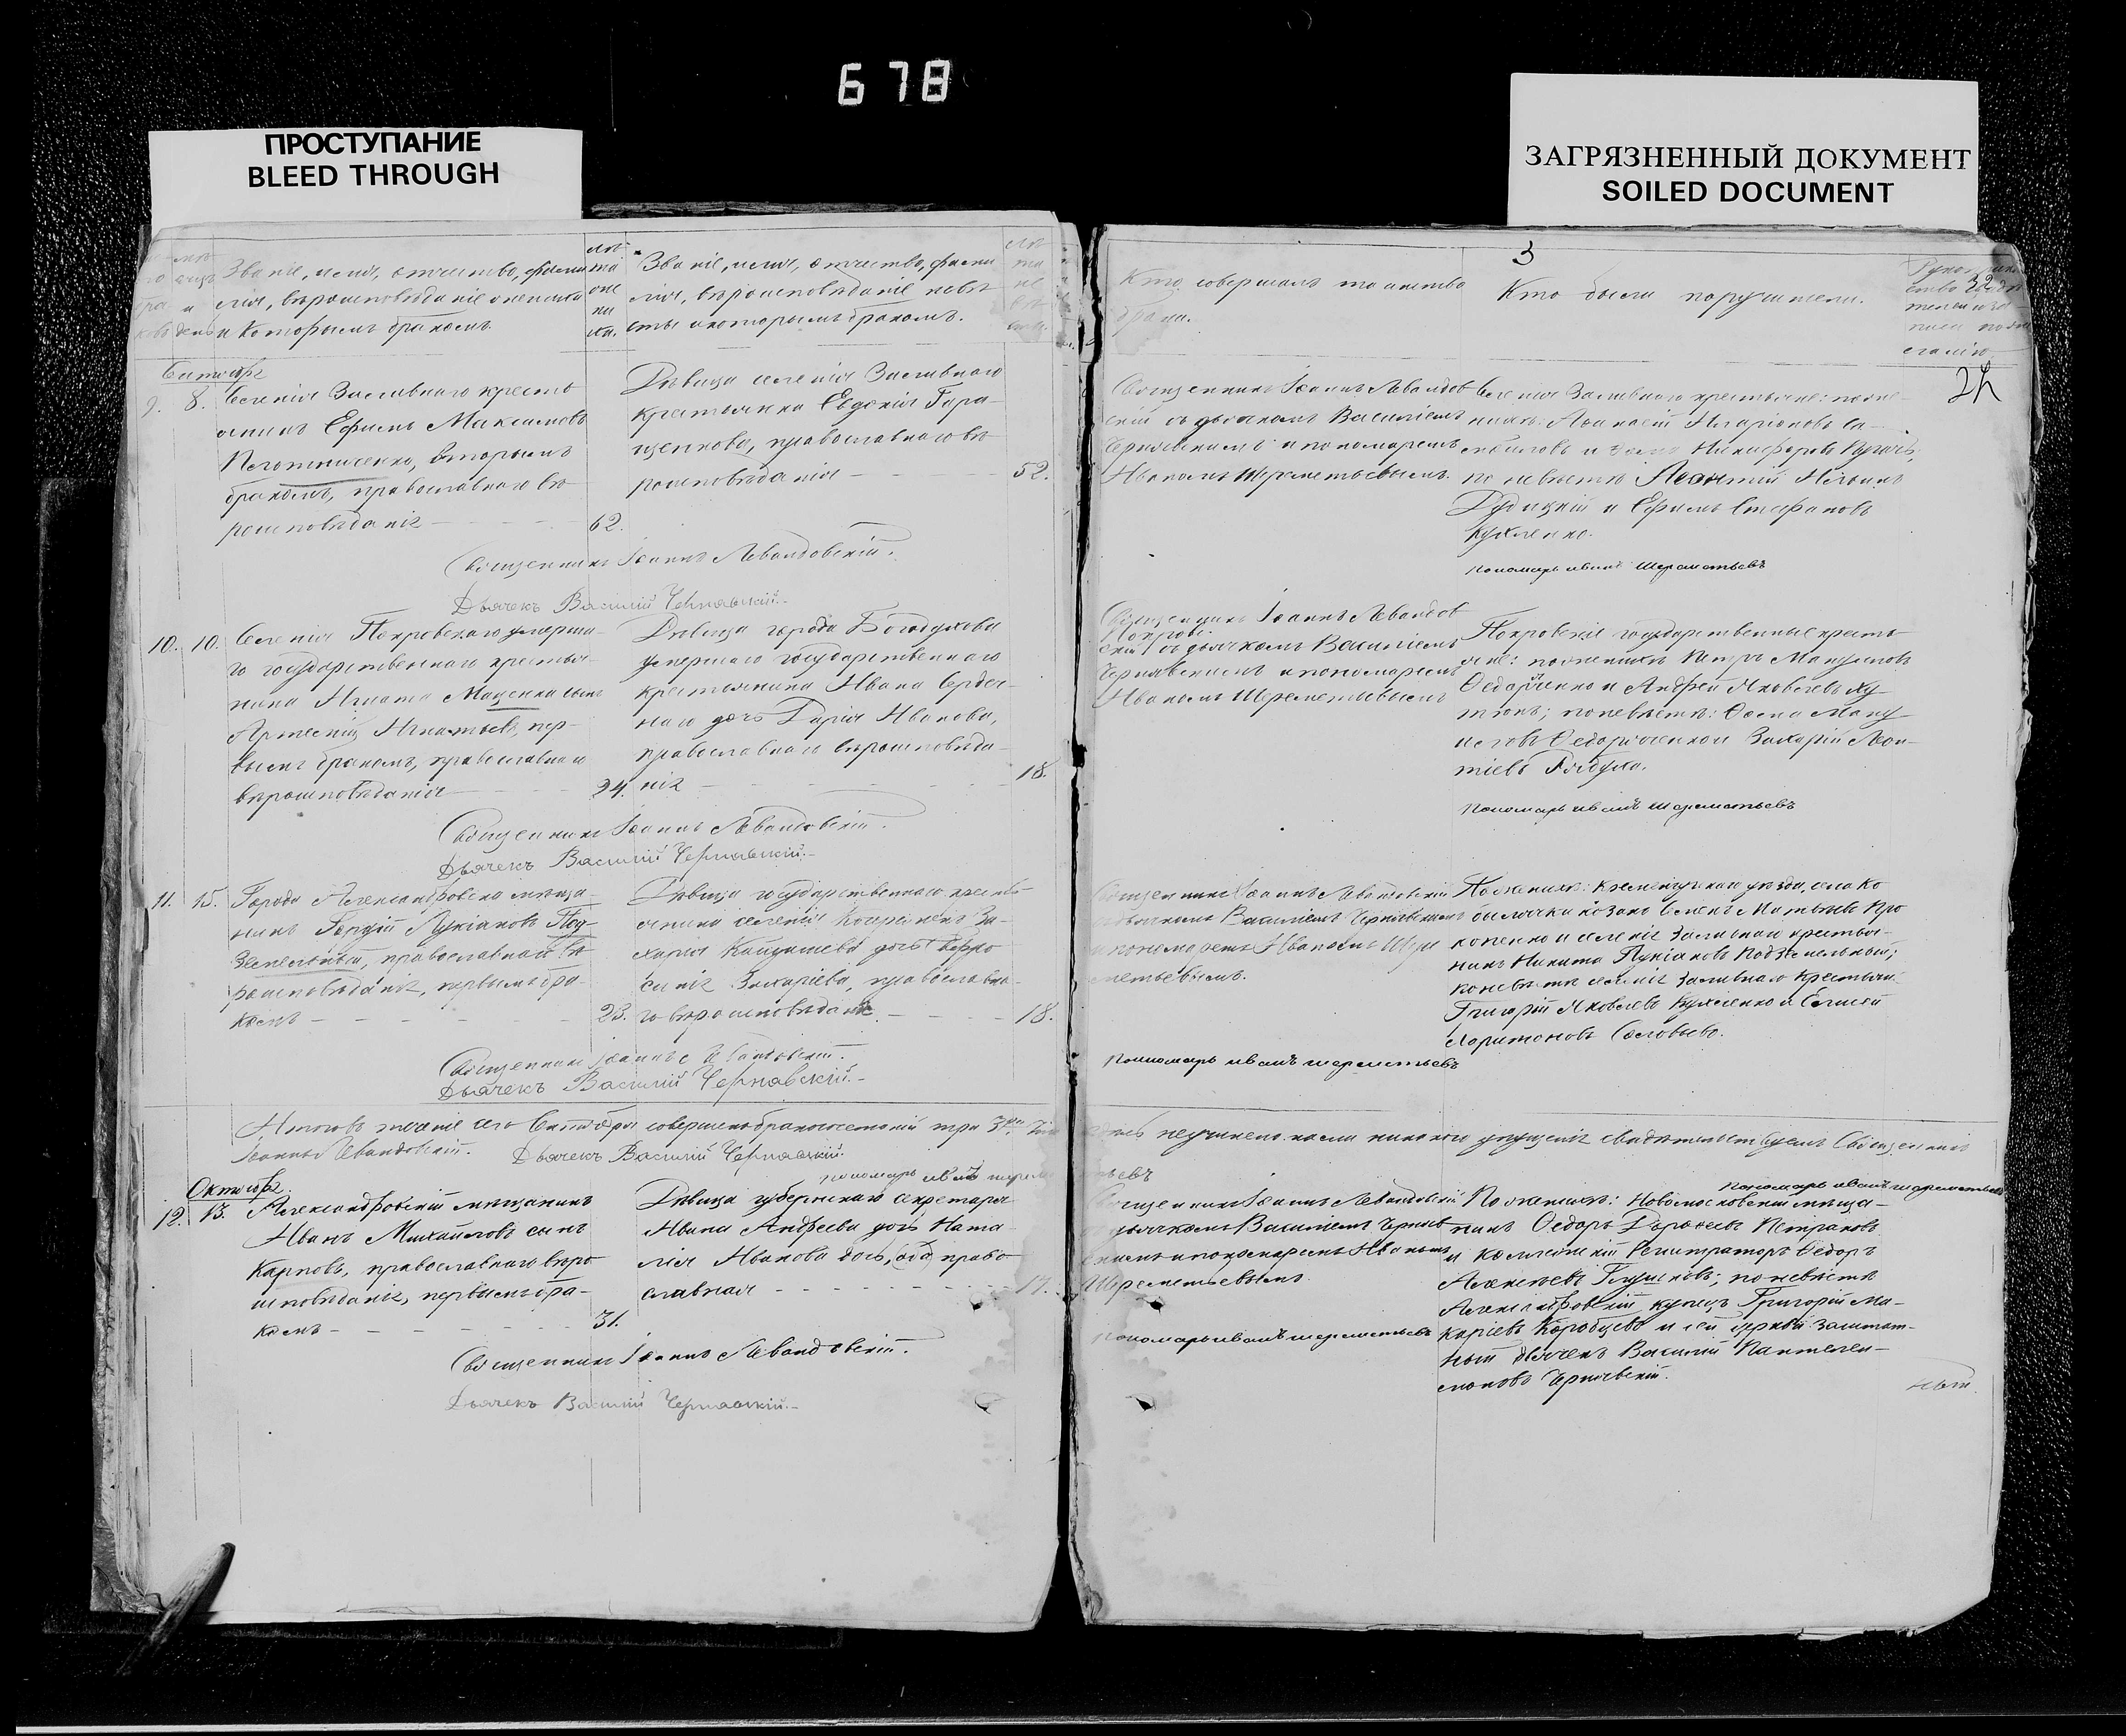 678
ПРОСТУПАНИЕ
BLEED THROUGH
ЗАГРЯЗНЕННЫЙ ДОКУМЕНТ
SOILED DOCUMENT
Званіе, имя, отчество, фами
лія, вѣроисповѣданіе жениха
и которымъ бракомъ.
лѣ
та
же
ни
ха.
Званіе, имя, отчество, фами
лія, вѣроисповѣданіе невѣ
сты и которымъ бракомъ.
3
Кто совершалъ таинство
брака.
Кто были поручители.
32
Сентябрь
9. 8. Селенія Заливнаго кресть
янинъ Ефимъ Максимовъ
вторымъ
бракомъ, православнаго вѣ
роисповѣданія 62.
Дѣвица селенія Заливнаго
крестьянка Евдокія Гера-
щенкова, православнаго вѣ
роисповѣданія 52.
Священникъ Іоаннъ Левандов
скій съ дьячкомъ Василіемъ
Чернявскимъ и пономаремъ
Иваномъ Шереметьевымъ.
Селенія Заливнаго крестьяне: по же-
нихѣ: Никифоровъ
по невѣстѣ Леонтій Ильинъ
Дудицкій и Ефимъ Стефановъ
Кухленко.
Пономарь иванъ Шереметьевъ
Священникъ Іоаннъ Левандовскій.
Дьячекъ Василій Чернявскій.
10. 10. Селенія Покровскаго умерша-
го государственнаго крестья-
нина Игната Маценка сынъ
Артемій Игнатьевъ, пер-
вымъ бракомъ, православнаго
вѣроисповѣданія 24.
Дѣвица города Богодухова
умершаго государственнаго
крестьянина Ивана Сердеч-
наго дочь Дарія Иванова,
православнаго вѣроисповѣда-
нія 18.
Священникъ Іоаннъ Левандов
скій съ дьячкомъ Василіемъ
Чернявскимъ и пономаремъ
Иваномъ Шереметьевымъ
Покровскіе государственные кресть
яне: по женихѣ Петръ Мануиловъ
и Андрей Яковлевъ Ку-
тюкъ; по невѣстѣ: Фома Ману
иловъ и Захарій Леон-
тіевъ
Пономарь иванъ шереметьевъ
Священникъ Іоаннъ Левандовскій.
Дьячекъ Василій Чернявскій.
11. 15. Города Александровска мѣща-
нинъ Лукіановъ Под-
земельный, православнаго вѣ
роисповѣданія, первымъ бра-
комъ 23.
Дѣвица государственнаго кресть-
янина селенія За-
харія дочь Ефро
синія Захаріева, православна-
го вѣроисповѣданія 18.
Священникъ Іоаннъ Левандовскій
дьячкомъ Василіемъ Чернявскимъ
и пономаремъ Иваномъ Шере
метьевымъ.
По женихѣ: Кременчугскаго уѣзда, села Ко
былячки козакъ Семенъ Матвѣевъ Про
копенко и селенія Заливнаго крестья-
нинъ Никита Лукіановъ Подземельный;
по невѣстѣ селенія Заливнаго крестьяне
Григорій Яковлевъ Кухленко и Елисей
Харитоновъ Соловьевъ.
Пономарь иванъ шереметьевъ
Священникъ Іоаннъ Левандовскій.
Дьячекъ Василій Чернявскій.
Итого въ теченіе сего Сентября совершено бракосочетаній три 3
Іоаннъ Левандовскій. Дьячекъ Василій Чернявскій.
свидѣтельствуемъ Священникъ
пономарь иванъ шереметьевъ
Октябрь
12. 13. Александровскій мѣщанинъ
Иванъ Михайловъ сынъ
Карповъ, православнаго вѣро
исповѣданія, первымъ бра-
комъ 31.
Дѣвица губернскаго секретаря
Ивана Андреева дочь Ната-
лія Иванова православная
Священникъ Іоаннъ Левандовскій
дьячкомъ Василіемъ Черняв
скимъ и пономаремъ Иваномъ
Шереметьевымъ
Пономарь иванъ шереметьевъ
По женихѣ: Новомосковскій мѣща-
нинъ Федоръ Петраковъ
и коллежскій Регистраторъ Федоръ
Алексѣевъ Глушковъ; по невѣстѣ
Александровскій купецъ Григорій Ма-
каріевъ Коробцевъ и сей церкви заштат-
ный дьячекъ Василій Пантелеи-
моновъ Чернявскій.
Священникъ Іоаннъ Левандовскій.
Дьячекъ Василій Чернявскій.